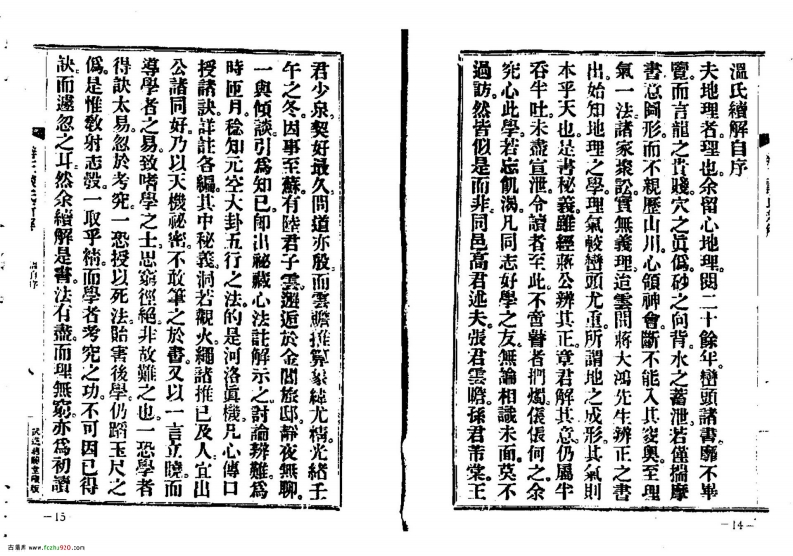 溫氏續解自序
夫地理者理也余留心地理閱二十餘年巒頭諸書靡不畢
覽而言龍之貴賤穴之眞僞砂之向背水之蓄泄若僅揣摩
書意圖形而不親歷山川心領神會斷不能入其窔奧至理
氣一法諸家聚訟實無義理迨雲間蔣大鴻先生辨正之書
出始知地理之學理氣較巒頭尤重所謂地之成形其氣則
本乎天也是書秘義雖經蔣公辨其正章君解其意仍屬半
吞半吐未盡宣泄令讀者至此不啻瞽者捫燭倀倀何之余
究心此學若忘飢渴凡同志好學之友無論相識未面莫不
過訪然皆似是而非同邑高君述夫張君雲瞻孫君芾棠王
君少泉契好最久問道亦殷而雲瞻推算象緯尤精光緒壬
午之冬因事至蘇有陸君子雲邂逅於金閶旅邸靜夜無聊
一與傾談引爲知已卽出祕藏心法註解示之討論辨難爲
時匝月稔知元空大卦五行之法的是河洛眞機凡心傳口
授諸訣詳註各編其中秘義洞若觀火繩諸推已及人宜出
公諸同好乃以天機祕密不敢筆之於書又以一言立曉而
導學者之易致嗜學之士思窮徑絕非故難之也一恐學者
得訣太易忽於考究一恐授以死法貽害後學仍蹈玉尺之
僞是惟敎射志彀一取乎精而學者考究之功不可因已得
訣而遽忽之耳然余續解是書法有盡而理無窮亦爲初讀
自序
—15
—14—
古易库 www.fczhu920.com